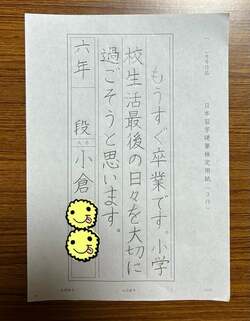 日本習字硬筆検定用紙
もうすぐ卒業です。小学
校生活最後の日々を大切に
過ごそうと思います。
六年
段
小倉